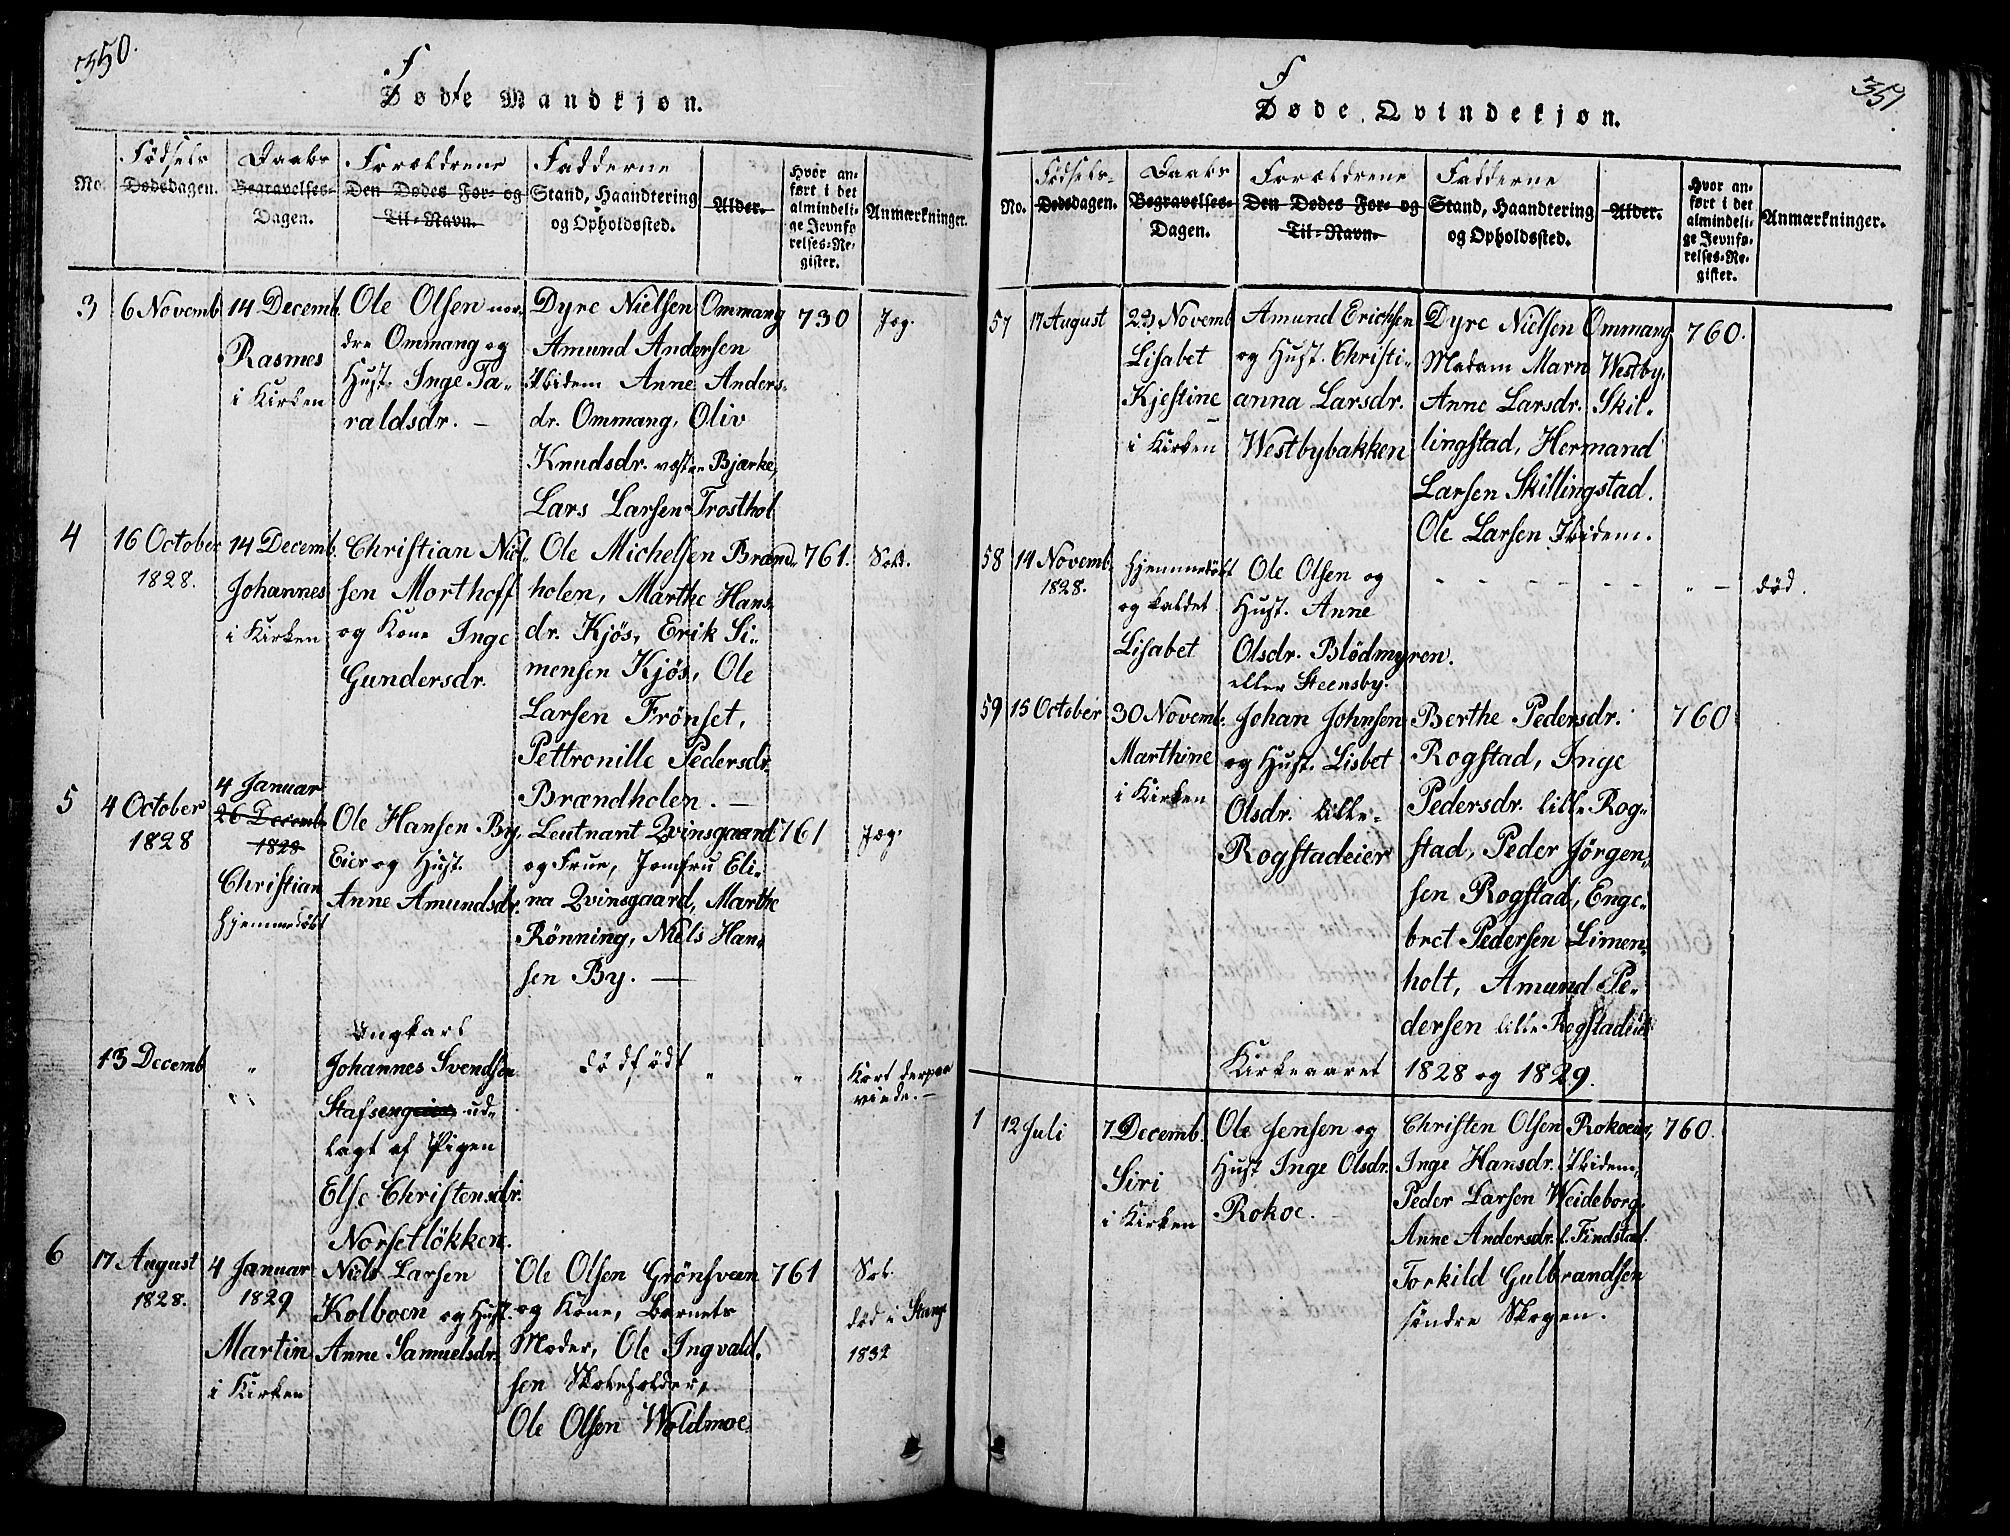 350.
F
Døde Mandkjøn.
No.
Fødsels
Dødsdagen.
Daabs
Begravelses-
Dagen.
Forældrene
Den Dødes For- og
Til-Navn.
Fadderne
Stand, Haandtering
og Opholdssted.
Alder.
Hvor an-
ført i det
almindeli-
ge Jevnfø-
relses-Re-
gister.
Anmærkninger.
3
6 Novemb.
14 Decemb.
Rasmes
i Kirken
Ole Olsen nor-
dre Ommang og
Hust. Inge Ta-
raldsdr. –
Dyre Nielsen Ommang
Amund Andersen
Ibidem Anne Anders-
dr. Ommang, Oliv
Knudsdr. vestre Bjærke,
Lars Larsen Trosthol
730
Jæg.
4
16 October
1828.
14 Decemb.
Johannes
i Kirken
Christian Niel-
sen Morthoff
og Kone Inge
Gundersdr.
Ole Michelsen Brænd-
holen, Marthe Hans-
dr. Kjös, Erik Si-
mensen Kjös, Ole
Larsen Frönset,
Pettronille Pedersdr.
Brændholen. –
761.
Sold.
5
4 October
1828
4 Januar
26 Decemb.
1828
Christian
hjemmedöbt
Ole Hansen By
Eier og Hust.
Anne Amundsdr.
Leutnant Qvinsgaard
og Frue, Jomfru Eli-
na Qvinsgaard, Marthe
Rönning, Niels Han-
sen By. –
761
Jæg.
13 Decemb
"
"
Ungkarl
Johannes Svendsen
Stafsengeien ud-
lagt af Pigen
Else Christensdr.
Norsetlökken.
dödfödt
"
"
Kort derpaa
viede. –
6
17 August
1828.
4 Januar
1829
Martin
i Kirken
Niels Larsen
Kolboen og Hust.
Anne Samuelsdr.
Ole Olsen Grönsveen
og Kone, Barnets
Moder, Ole Ingvald-
sen Skoleholder,
Ole Olsen Woldmoe.
761
Sol.
död i Stange
1832
351
F
Døde Qvindekjøn.
No.
Fødsels-
Dødsdagen.
Daabs
Begravelses-
Dagen.
Forældrene
Den Dødes For- og
Til-Navn.
Fadderne
Stand, Haandtering
og Opholdssted.
Alder.
Hvor an-
ført i det
almindeli-
ge Jevnfø-
relses-Re-
gister.
Anmærkninger.
57
17 August
23 Novemb
Lisabet
Kjestine
i Kirken
Amund Erichsen
og Hust. Christi-
anna Larsdr.
Westbybakken
Dyre Nielsen Ommang
Madam Marn Westby,
Anne Larsdr. Skil-
lingstad, Hermand
Larsen Skillingstad.
Ole Larsen Ibidem.
760.
58
14 Novemb.
1828.
hjemmedöbt
og kaldet
Lisabet
Ole Olsen og
Hust. Anne
Olsdr. Blödmyren.
eller Steensby.
- - - - - - -
" –
död.
59
15 October
30 Novemb.
Marthine
i Kirken
Johan Johnsen
og Hust. Lisbet
Olsdr. lille-
Rogstadeier
Berthe Pedersdr.
Rogstad, Inge
Pedersdr. lille Rog-
stad, Peder Jörgen-
sen Rogstad, Enge-
bret Pedersen Limen-
holt, Amund Pe-
dersen lille Rogstadeie
760
Kirkeaaret 1828 og 1829.
1
12 Juli
7 Decemb.
Siri
i Kirken
Ole Jensen og
Hust Inge Olsdr.
Rokoe. –
Christen Olsen Rokoeie,
Inge Hansdr. Ibidem,
Peder Larsen Weideborg,
Anne Andersdr. l. Findstad.
Torkild Gulbrandsen
söndre Skogen.
760.